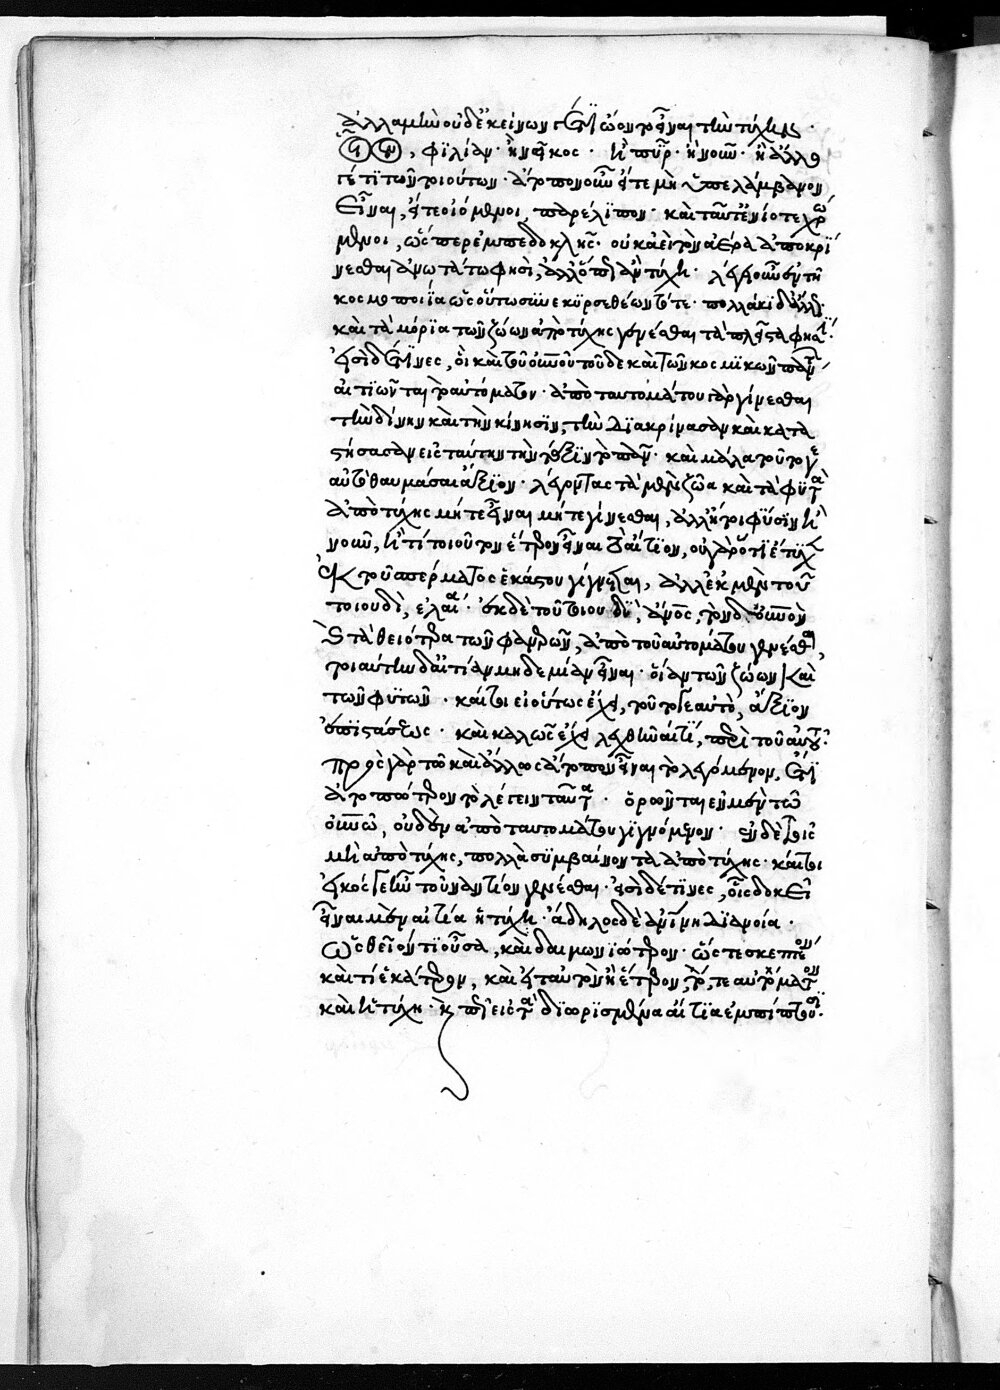 ἀλλα μὴν οὐδ' ἐκείνων γέ τϊ ὤοντο εἶναι τὴν τύχην.
οἷον, φϊλίαν· ἢ νεῖκος· ἢ πῦρ· ἢ νοῦν· ἢ ἄλλο
γέ τϊ τῶν τοιούτων· ἄτοπον οὖν εἴτε μὴ ὑπελάμβανον
εἶναι, εἴτε οἰόμενοι, παρέλϊπον· καὶ ταῦτ' ἐνίοτε χρώ
μενοι, ὥσπερ ἐμπεδοκλῆς· οὐκ ἀεὶ τὸν ἀέρα ἀποκρί
νεσθαι ἀνωτάτω φησὶ, ἀλλ' ὅπως ἂν τύχη· λέγει οὖν ἐν τῆ
κοσμοποιΐα ὡς οὕτω συνέκϋρσε θέων τότε· πολλάκι δ' ἄλλως·
καὶ τὰ μόρϊα τῶν ζώων ἀπὸ τύχης γενέσθαι τὰ πλεῖστα φησΐ·
εἰσὶ δέ τϊνες, οἳ καὶ τοῦ οὐρανοῦ τοῦδε καὶ τῶν κοσμϊκῶν πάντων
αἰτϊῶνται τὸ αὐτόματον· ἀπὸ ταυτομάτου γὰρ γίνεσθαι
τὴν δίνην καὶ τὴν κίνησϊν, τὴν διακρίνασαν καὶ κατα
στήσασαν εἰς ταύτην τὴν τάξϊν τὸ πᾶν· καὶ μάλα τοῦτό γε
αὐτὸ θαυμάσαι ἄξϊον· λέγοντας τὰ μὲν ζῶα καὶ τὰ φϋτὰ
ἀπὸ τύχης μήτε εἶναι μήτε γίνεσθαι, ἀλλ' ἤτοι φύσϊν ἢ
νοῦν, ἤ τι τοιοῦτον ἕτερον εἶναι τὸ αἴτϊον, οὐ γὰρ ὅ τϊ ἔτϋχεν
ἐκ τοῦ σπέρματος ἑκάστου γίγνεται, ἀλλ' ἐκ μὲν τοῦ
τοιουδὶ, ἐλαία· ἐκ δὲ τοῦ τοιουδΐ, ἄνος, τὸν δ' οὐρανὸν
καὶ τὰ θειότερα τῶν φανερῶν, ἀπὸ τοῦ αὐτομάτου γενέσθαι,
τοιαύτην δ' αἰτίαν μηδεμίαν εἶναι· οἵαν τῶν ζώων καὶ
τῶν φϋτῶν· καίτοι εἰ οὕτως ἔχει, τοῦτό γε αὐτὸ, ἄξϊον
ἐπϊστάσεως· καὶ καλῶς ἔχει λεχθῆναί τϊ, περὶ τοῦ αὐτοῦ·
πρὸς γὰρ τῶ καὶ ἄλλως ἄτοπον εἶναι τὸ λεγόμενον, ἔτϊ
ἀτοπώτερον τὸ λέγειν ταῦτα· ὁρῶνται ἐν μὲν τῶ
οὐρανῶ, οὐδὲν ἀπὸ ταυτομάτου γϊγνόμενον· ἐν δὲ τοῖς
μὴ ἀπὸ τύχης, πολλὰ σϋμβαίνοντα ἀπὸ τύχης· καίτοι
εἰκός γε ἦν τοὐναντίον γενέσθαι· εἰσὶ δέ τϊνες, οἷς δοκεῖ
εἶναι μὲν αἰτία ἡ τύχη· ἄδηλος δὲ ἀνϊνη διανοία·
ὡς θεῖόν τϊ οὖσα, καὶ δαιμονϊώτερον· ὥς τε σκεπτέον
καὶ τί ἑκάτερον, καὶ εἰ ταὐτὸν ἢ ἕτερον, τό, τε αὐτόματον
καὶ ἡ τύχη· καὶ πῶς εἰς τὰ διωρϊσμένα αἴτϊα ἐμπίπτουσϊ·